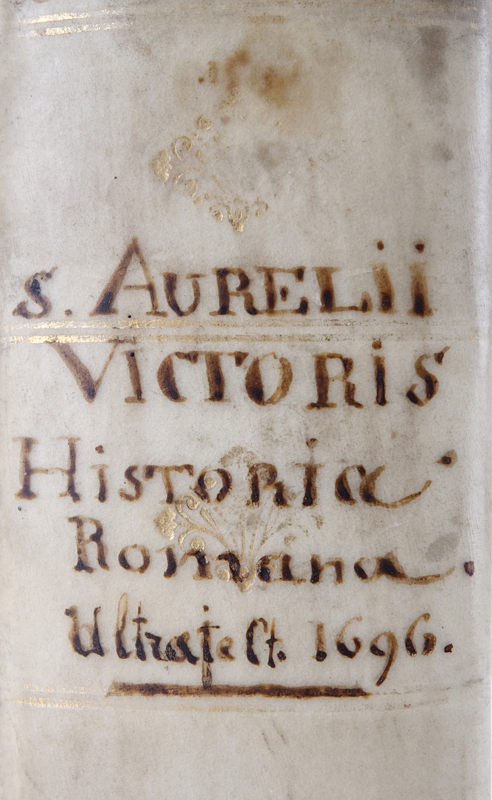 S. AURELii
VICTORiS
HiSTORia
Romana.
Ultrajest. 1696.